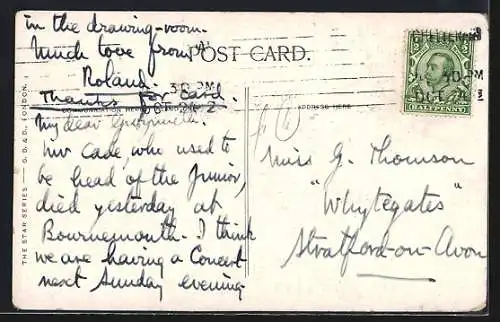 in the drawing-room.
Much love from
Roland.
Thanks for card.
POST CARD.
ADDRESS HERE
THE STAR SERIES — G. D. & D., LONDON.
CHELTENHAM
PM
OCT
HALFPENNY
My dear
Mr Cade who used to
be head of the Junior,
died yesterday at
Bournemouth. I think
we are having a Concert
next Sunday evening
Miss G. Thomson
"Whytegates"
Stratford-on-Avon